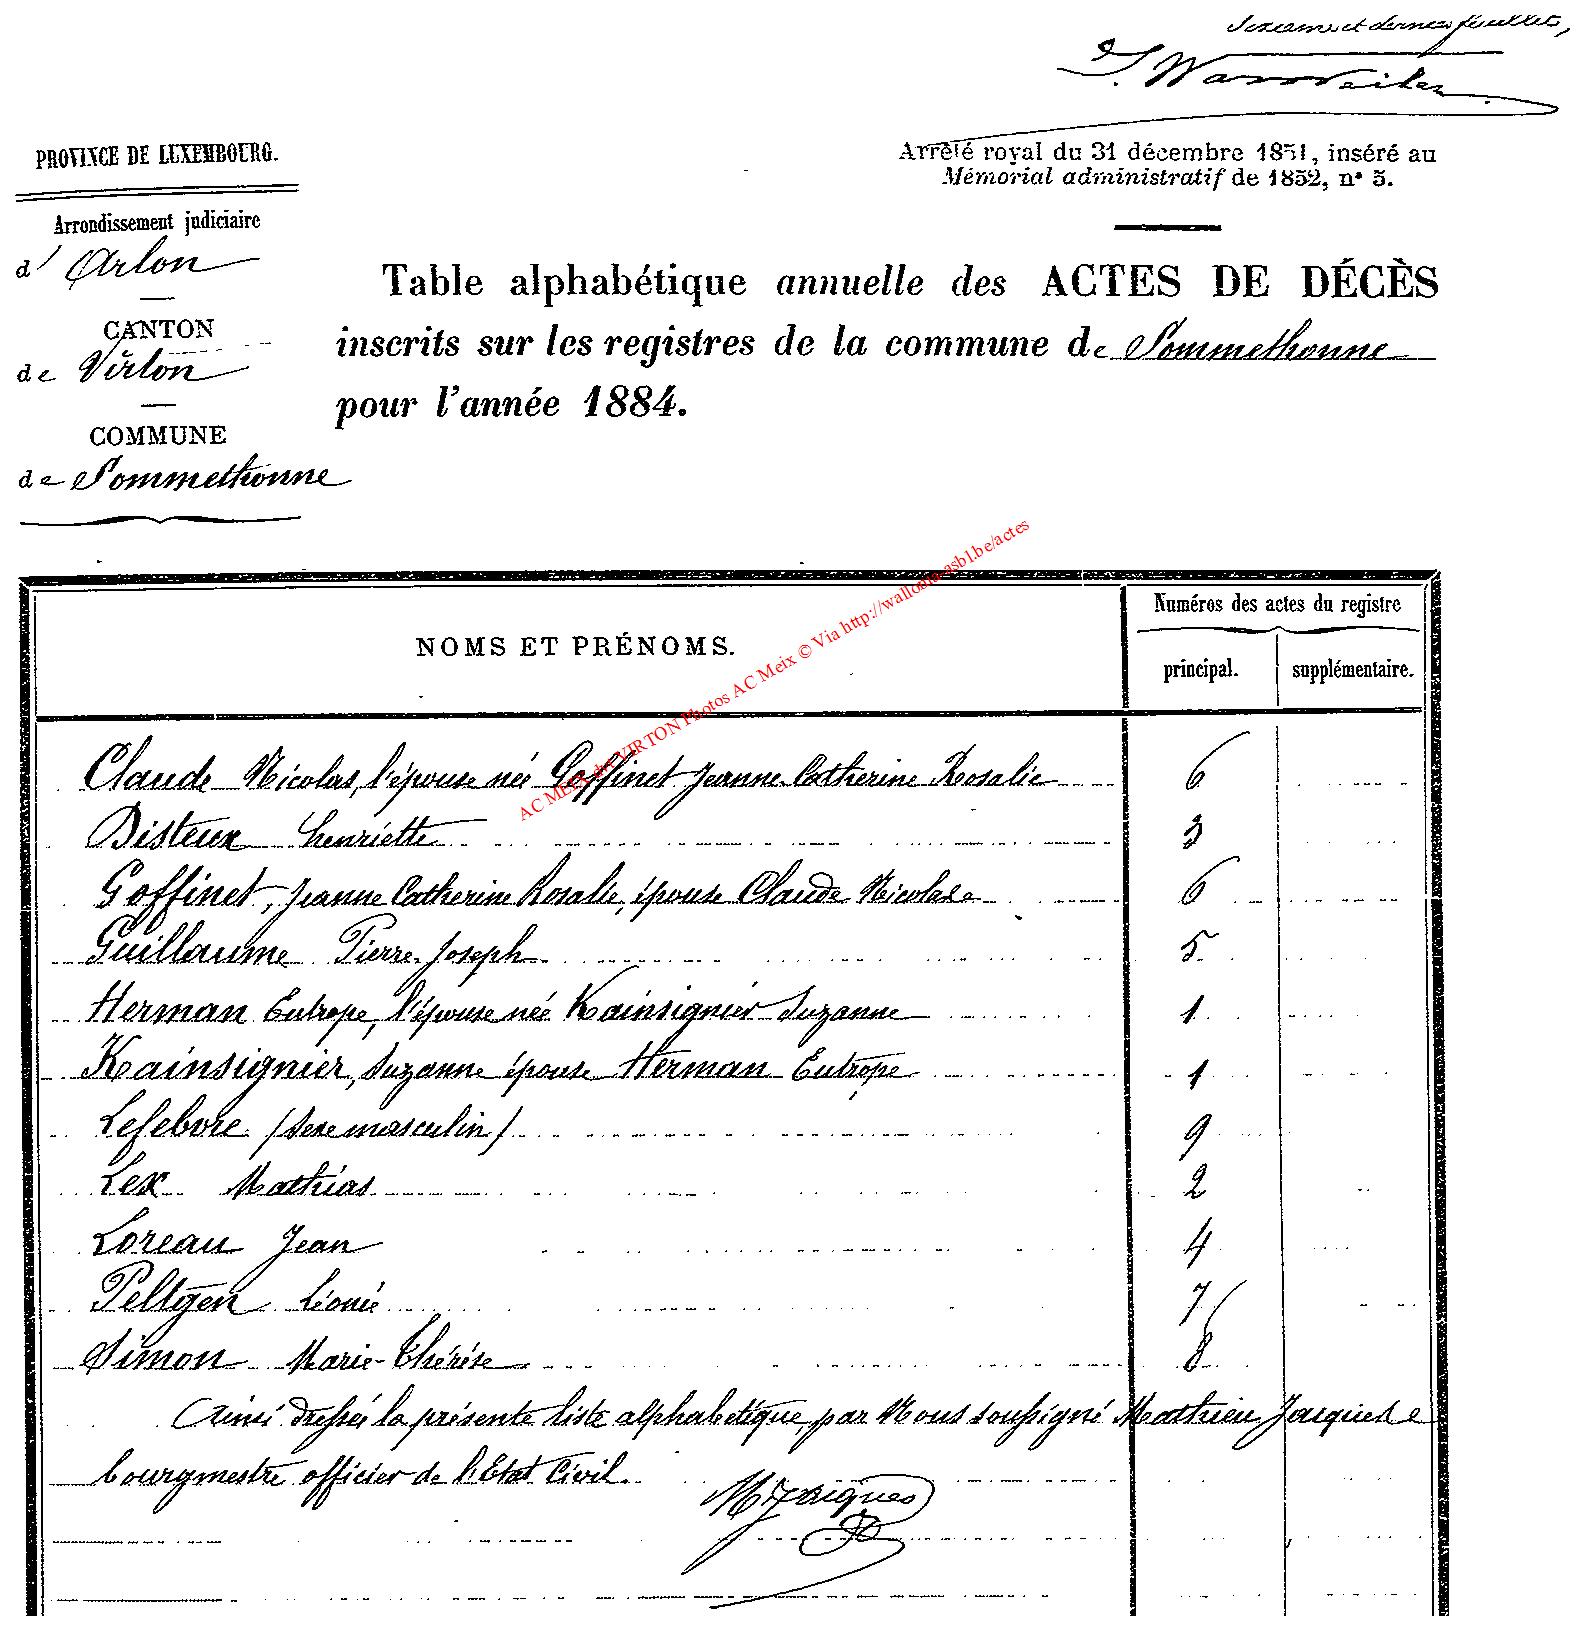 et dernier feuillets,
PROVINCE DE LUXEMBOURG.
Arrondissement judiciaire
d' Arlon
CANTON
de Virton
COMMUNE
de Sommethonne
Arrêté royal du 31 décembre 1851, inséré au
Mémorial administratif de 1852, n° 5.
Table alphabétique annuelle des ACTES DE DÉCÈS
inscrits sur les registres de la commune de Sommethonne
pour l'année 1884.
AC MEIX dvt VIRTON Photos AC Meix © Via http://wallonia-asbl.be/actes
NOMS ET PRÉNOMS.
Numéros des actes du registre
principal. supplémentaire.
Claude Nicolas, l'épouse née Goffinet Jeanne Catherine Rosalie 6
Disteux henriette 3
Goffinet, Jeanne Catherine Rosalie, épouse Claude Nicolas 6
Guillaume Pierre-Joseph 5
Herman Eutrope, l'épouse née Kainsignier Suzanne 1
Kainsignier, Suzanne épouse Herman Eutrope 1
Lefebvre (sexe masculin) 9
Lex Mathias 2
Loreau Jean 4
Peltgen Léonie 7
Simon Marie-Thérèse 8
Ainsi dressée la présente liste alphabétique, par Nous soussigné Mathieu Jacques
bourgmestre officier de l'Etat Civil.
M Jacques